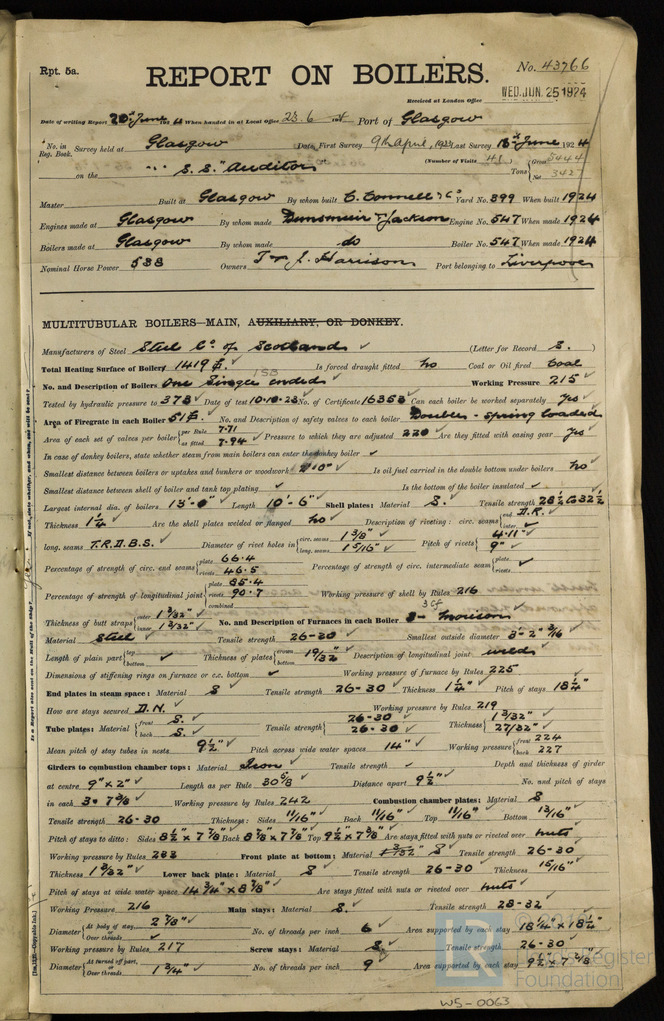 Rpt. 5a.
REPORT ON BOILERS.
No. 43766
Received at London Office
WED. JUN. 25 1924
Date of writing Report 20th June 1924 When handed in at Local Office 23.6.24 Port of Glasgow
No. in Reg. Book. Survey held at Glasgow Date, First Survey 9th April, 1923 Last Survey 18th June 1924
on the S.S. "Auditor" (Number of Visits 41) Tons { Gross 5444 Net 3427
Master Built at Glasgow By whom built C. Connell & Co Yard No. 399 When built 1924
Engines made at Glasgow By whom made Dunsmuir & Jackson Engine No. 547 When made 1924
Boilers made at Glasgow By whom made do Boiler No. 547 When made 1924
Nominal Horse Power 538 Owners T. & J. Harrison Port belonging to Liverpool
MULTITUBULAR BOILERS MAIN, AUXILIARY, OR DONKEY.
Manufacturers of Steel Steel Co. of Scotland (Letter for Record S.)
Total Heating Surface of Boilers 1419 Is forced draught fitted no Coal or Oil fired coal
1SB
No. and Description of Boilers One Single ended Working Pressure 215
Tested by hydraulic pressure to 373 Date of test 10.10.23 No. of Certificate 16353 Can each boiler be worked separately yes
Area of Firegrate in each Boiler 51 No. and Description of safety valves to each boiler Double - Spring loaded
Area of each set of valves per boiler { per Rule 7.71 as fitted 7.94 Pressure to which they are adjusted 220 Are they fitted with easing gear yes
In case of donkey boilers, state whether steam from main boilers can enter the donkey boiler
Smallest distance between boilers or uptakes and bunkers or woodwork 2'0" Is oil fuel carried in the double bottom under boilers no
Smallest distance between shell of boiler and tank top plating Is the bottom of the boiler insulated
Largest internal dia. of boilers 13'-0" Length 10'-6" Shell plates: Material S. Tensile strength 28½ to 32½
Thickness 1¼" Are the shell plates welded or flanged no Description of riveting: circ. seams { end D.R. inter.
long. seams T.R.D.B.S. Diameter of rivet holes in { circ. seams 1 3/8" long. seams 1 5/16" Pitch of rivets { 4.11" 9"
Percentage of strength of circ. end seams { plate 66.4 rivets 46.5 Percentage of strength of circ. intermediate seam { plate rivets
Percentage of strength of longitudinal joint { plate 85.4 rivets 90.7 combined Working pressure of shell by Rules 216
3 Cf
Thickness of butt straps { outer 1 3/32" inner 1 3/32" No. and Description of Furnaces in each Boiler 3 - Morison
Material Steel Tensile strength 26-30 Smallest outside diameter 3'-2 3/16"
Length of plain part { top bottom Thickness of plates { crown bottom 19/32" Description of longitudinal joint weld
Dimensions of stiffening rings on furnace or c.c. bottom Working pressure of furnace by Rules 225
End plates in steam space: Material S Tensile strength 26-30 Thickness 1¼" Pitch of stays 18¼"
How are stays secured D.N. Working pressure by Rules 219
Tube plates: Material { front S. back S. Tensile strength { 26-30 26-30 Thickness { 1 3/32" 27/32"
Mean pitch of stay tubes in nests 9½" Pitch across wide water spaces 14" Working pressure { front 224 back 227
Girders to combustion chamber tops: Material Iron Tensile strength Depth and thickness of girder
at centre 9" x 2" Length as per Rule 30 5/8" Distance apart 9½" No. and pitch of stays
in each 3 - 7 3/8" Working pressure by Rules 242 Combustion chamber plates: Material S
Tensile strength 26-30 Thickness: Sides 11/16" Back 11/16" Top 11/16" Bottom 13/16"
Pitch of stays to ditto: Sides 8½" x 7 7/8" Back 8 7/8" x 7 7/8" Top 9½" x 7 3/8" Are stays fitted with nuts or riveted over nuts
Working pressure by Rules 233 Front plate at bottom: Material S Tensile strength 26-30
Thickness 1 3/32" Lower back plate: Material S Tensile strength 26-30 Thickness 15/16"
Pitch of stays at wide water space 14¾" x 8 7/8" Are stays fitted with nuts or riveted over nuts
Working Pressure 216 Main stays: Material S. Tensile strength 28-32
Diameter { At body of stay, or Over threads 2 7/8" No. of threads per inch 6 Area supported by each stay 18¼" x 18¼"
Working pressure by Rules 217 Screw stays: Material S Tensile strength 26-30
Diameter { At turned off part, or Over threads 1¾" No. of threads per inch 9 Area supported by each stay 9½" x 7 7/8"
Is a Report also sent on the Hull of the Ship?
Lloyd's Register Foundation
W5-0063